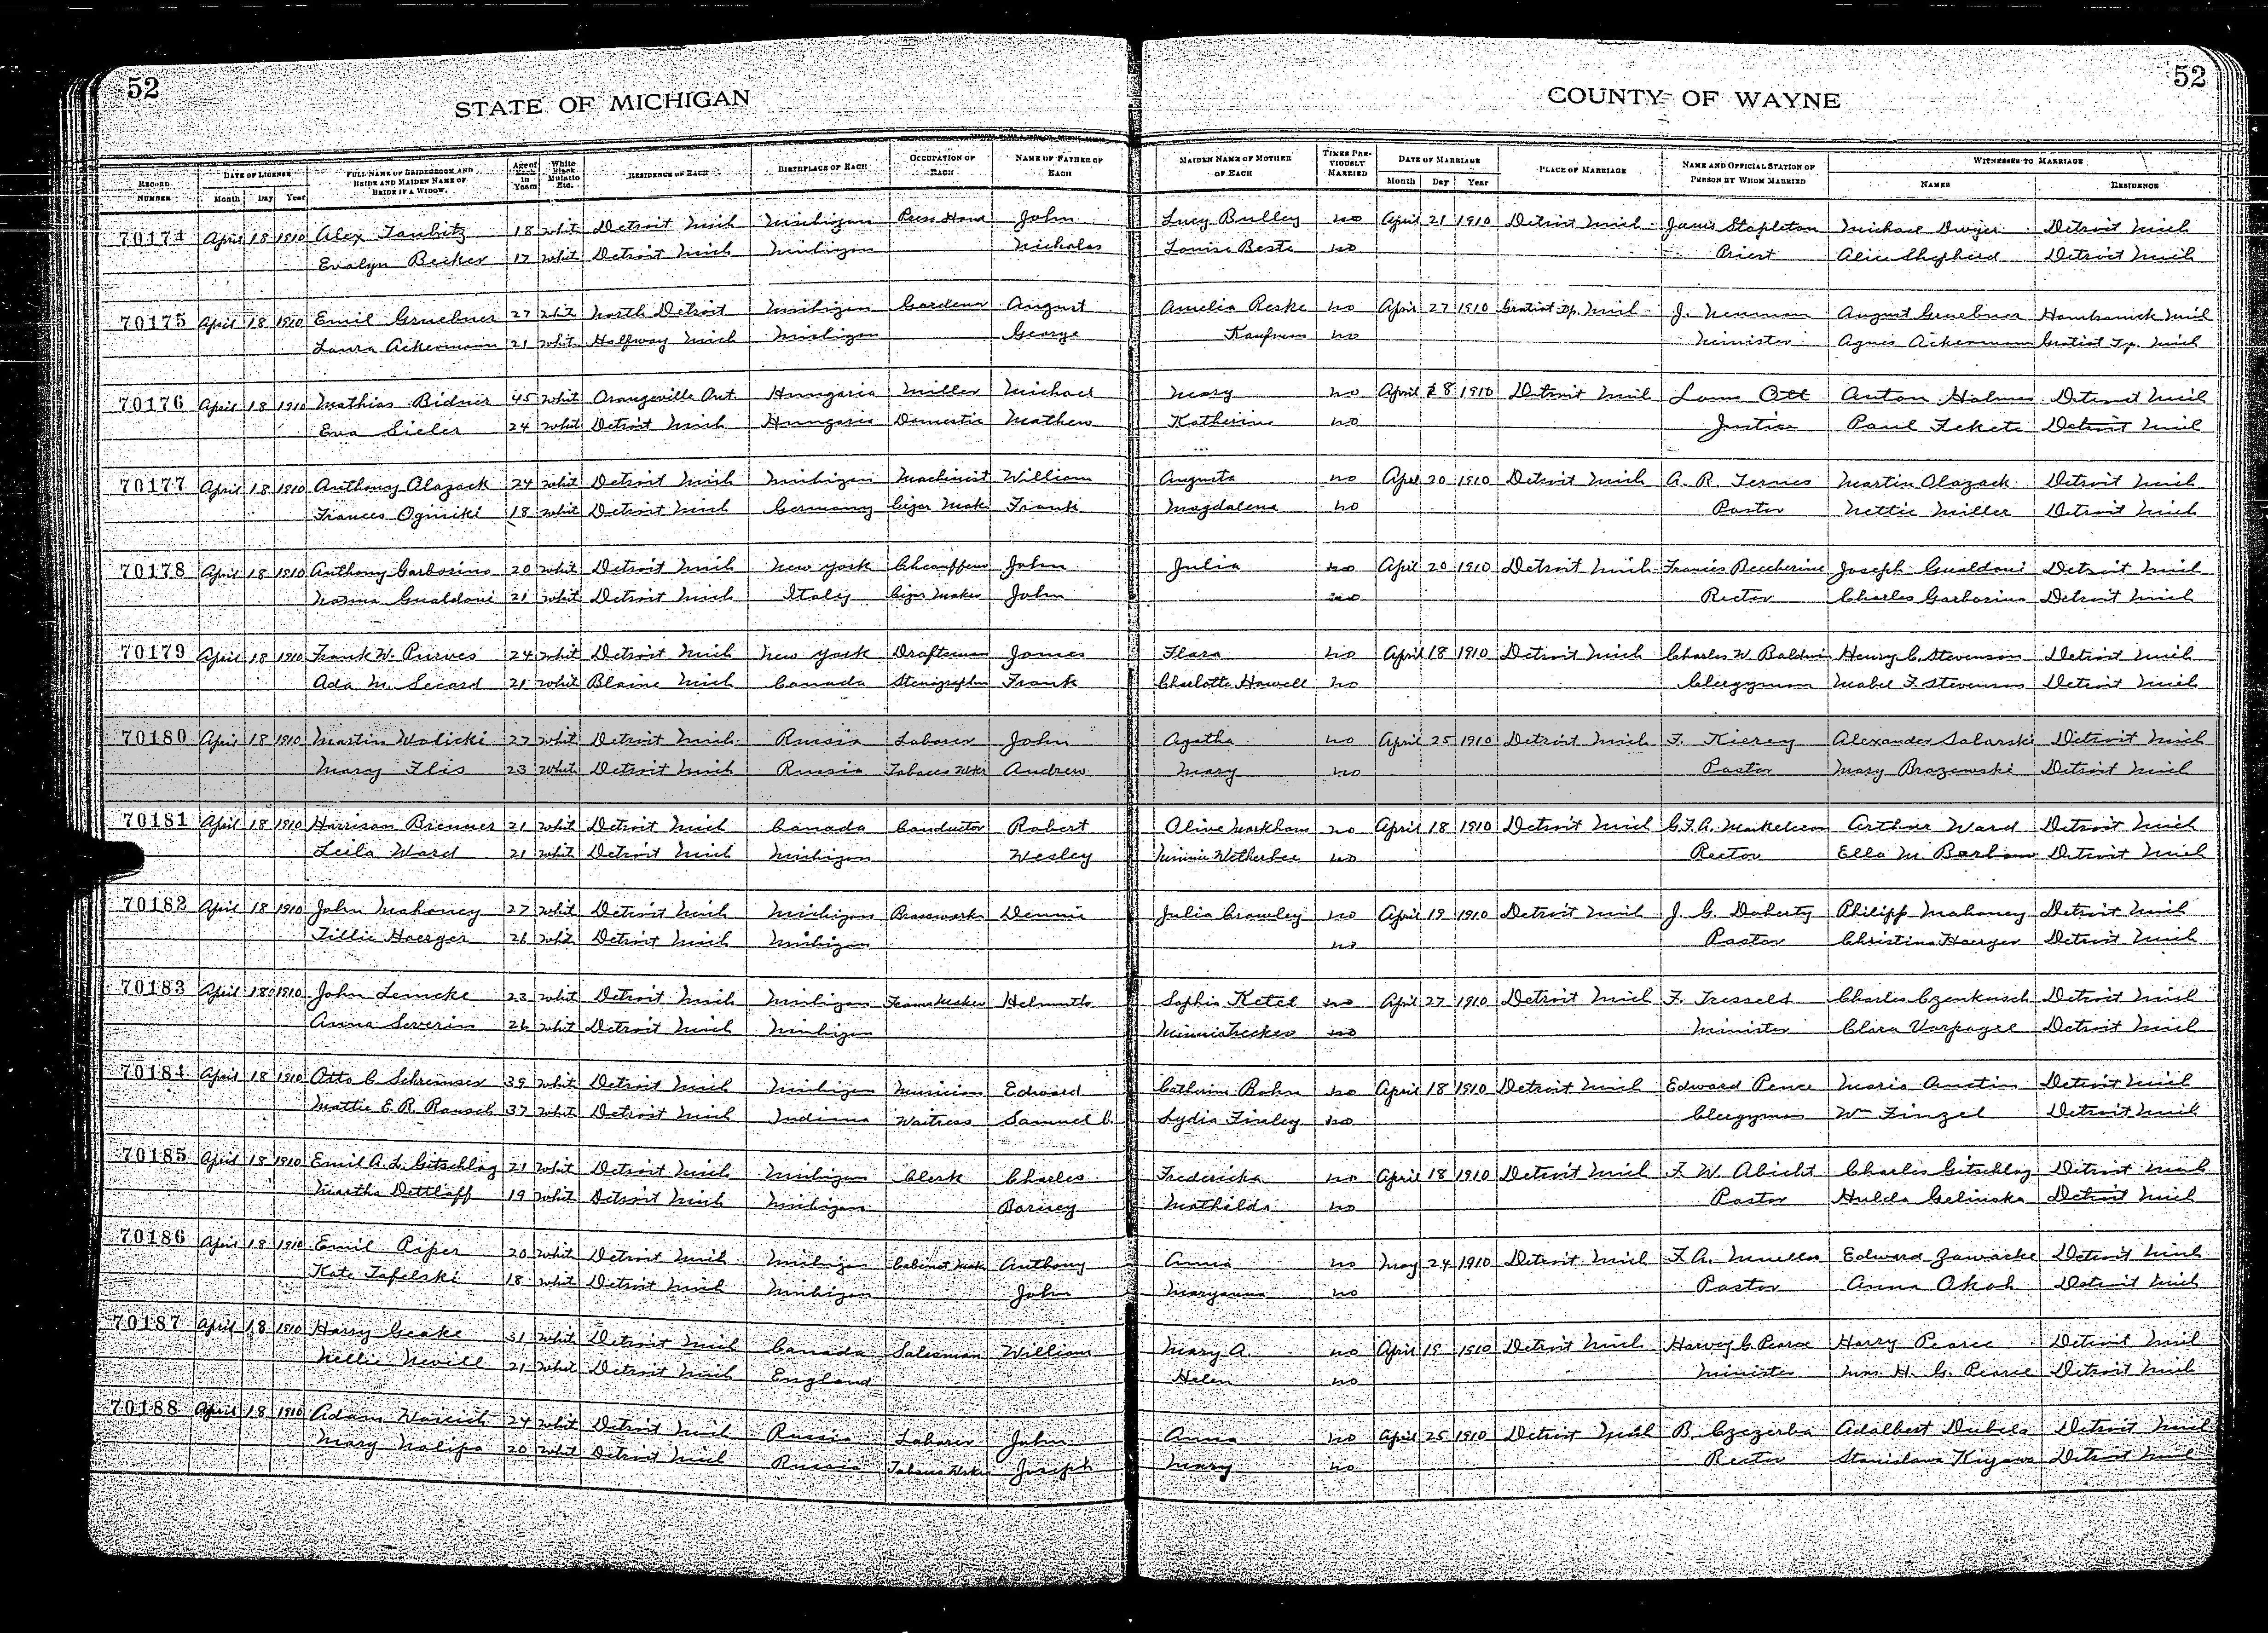 52
STATE OF MICHIGAN
COUNTY OF WAYNE
52
RECORD NUMBER | DATE OF LICENSE Month Day Year | FULL NAME OF BRIDEGROOM AND BRIDE AND MAIDEN NAME OF BRIDE IF A WIDOW. | Age of Each in Years | White Black Mulatto Etc. | RESIDENCE OF EACH | BIRTHPLACE OF EACH | OCCUPATION OF EACH | NAME OF FATHER OF EACH | MAIDEN NAME OF MOTHER OF EACH | TIMES PREVIOUSLY MARRIED | DATE OF MARRIAGE Month Day Year | PLACE OF MARRIAGE | NAME AND OFFICIAL STATION OF PERSON BY WHOM MARRIED | WITNESSES TO MARRIAGE NAMES RESIDENCE
70174 April 18 1910 Alex Taubitz 18 whit Detroit Mich Michigan Press Hand John Lucy Bulley no April 21 1910 Detroit Mich James Stapleton Michael Dwyer Detroit Mich
Evalyn Becker 17 whit Detroit Mich Michigan Nicholas Louise Beste no Priest Alice Shepherd Detroit Mich
70175 April 18 1910 Emil Gruebner 27 whit North Detroit Michigan Gardener August Amelia Reske no April 27 1910 Gratiot Tp. Mich J. Neuman August Gruebner Hamtramck Mich
Laura Ackermann 21 whit Halfway Mich Michigan George Kaufman no Minister Agnes Ackermann Gratiot Tp. Mich
70176 April 18 1910 Mathias Bidner 45 whit Orangeville Ont Hungaria Miller Michael Mary no April 18 1910 Detroit Mich Louis Ott Anton Holmes Detroit Mich
Eva Sieler 24 whit Detroit Mich Hungaria Domestic Mathew Katherine no Justice Paul Fekete Detroit Mich
70177 April 18 1910 Anthony Olazack 24 whit Detroit Mich Michigan Machinist William Augusta no April 20 1910 Detroit Mich A. R. Ternes Martin Olazack Detroit Mich
Frances Oginiki 18 whit Detroit Mich Germany Cigar Mak Frank Magdalena no Pastor Nettie Miller Detroit Mich
70178 April 18 1910 Anthony Garbosino 20 whit Detroit Mich New York Cheauffeur John Julia no April 20 1910 Detroit Mich Francis Beccherini Joseph Gualdoni Detroit Mich
Norma Gualdoni 21 whit Detroit Mich Italy Cigar Maker John no Rector Charles Garbosino Detroit Mich
70179 April 18 1910 Frank W. Purves 24 whit Detroit Mich New York Draftsman James Flora no April 18 1910 Detroit Mich Charles W. Baldwin Henry C. Stevenson Detroit Mich
Ada M. Secord 21 whit Blaine Mich Canada Stenographer Frank Charlotte Howell no Clergyman Mabel F. Stevenson Detroit Mich
70180 April 18 1910 Martin Wolicki 27 whit Detroit Mich Russia Laborer John Agatha no April 25 1910 Detroit Mich F. Kierey Alexander Salarski Detroit Mich
Mary Flis 23 whit Detroit Mich Russia Tobacco Wker Andrew Mary no Pastor Mary Brazowski Detroit Mich
70181 April 18 1910 Harrison Brenner 21 whit Detroit Mich Canada Conductor Robert Olive Markham no April 18 1910 Detroit Mich Arthur Ward Detroit Mich
Leila Ward 21 whit Detroit Mich Michigan Wesley Minnie Wetherbee no Rector Ella M. Barlow Detroit Mich
70182 April 18 1910 John Mahoney 27 whit Detroit Mich Michigan Brassworker Dennis Julia Crowley no April 19 1910 Detroit Mich J. G. Doherty Philipp Mahoney Detroit Mich
Tillie Hoerger 26 whit Detroit Mich Michigan no Pastor Christina Hoerger Detroit Mich
70183 April 18 1910 John Lemcke 23 whit Detroit Mich Michigan Helmuth Sophia Ketel no April 27 1910 Detroit Mich F. Tresselt Charles Czenkusch Detroit Mich
Anna Severin 26 whit Detroit Mich Michigan no Minister Clara Varpagel Detroit Mich
70184 April 18 1910 Otto C. Schremser 39 whit Detroit Mich Michigan Musician Edward Catherine Bohn no April 18 1910 Detroit Mich Edward Pence Maria Austin Detroit Mich
Mattie E. R. Rausch 37 whit Detroit Mich Indiana Waitress Samuel C. Lydia Finley no Clergyman Wm Finzel Detroit Mich
70185 April 18 1910 Emil A. L. Gitschlag 21 whit Detroit Mich Michigan Clerk Charles Fredericka no April 18 1910 Detroit Mich F. W. Abicht Charles Gitschlag Detroit Mich
Martha Dettlaff 19 whit Detroit Mich Michigan Barney Mathilda no Pastor Hulda Gelinska Detroit Mich
70186 April 18 1910 Emil Piper 20 whit Detroit Mich Michigan Cabinet Mak Anthony Anna no May 24 1910 Detroit Mich F. A. Mueller Edward Zawacke Detroit Mich
Kate Tafelski 18 whit Detroit Mich Michigan John Maryanna no Pastor Anna Okoh Detroit Mich
70187 April 18 1910 Harry Geake 31 whit Detroit Mich Canada Salesman William Mary A. no April 19 1910 Detroit Mich Harvey G. Pearce Harry Pearce Detroit Mich
Nellie Nevill 21 whit Detroit Mich England Helen no Minister Mrs. H. G. Pearce Detroit Mich
70188 April 18 1910 Adam 24 whit Detroit Mich Russia Laborer John Anna no April 25 1910 Detroit Mich B. Czezerba Adalbert Dubela Detroit Mich
Mary Nalipa 20 whit Detroit Mich Russia Tobacco Wker Joseph Mary no Rector Stanislawa Kujawa Detroit Mich